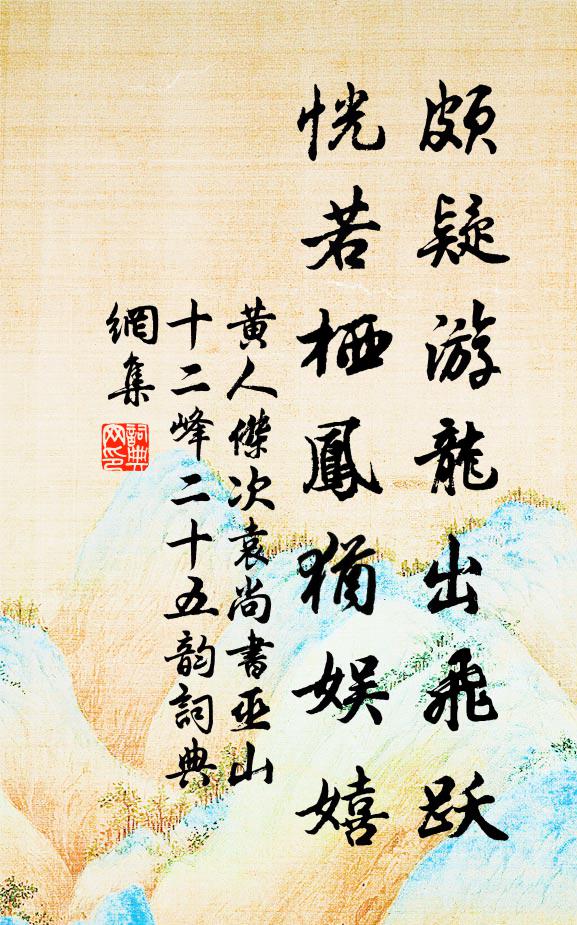 頗疑游龍出飛跃
恍若栖鳳猶娱嬉
黄人傑次袁尚書巫山
十二峰二十五韵詞典
網集
詞典
网印